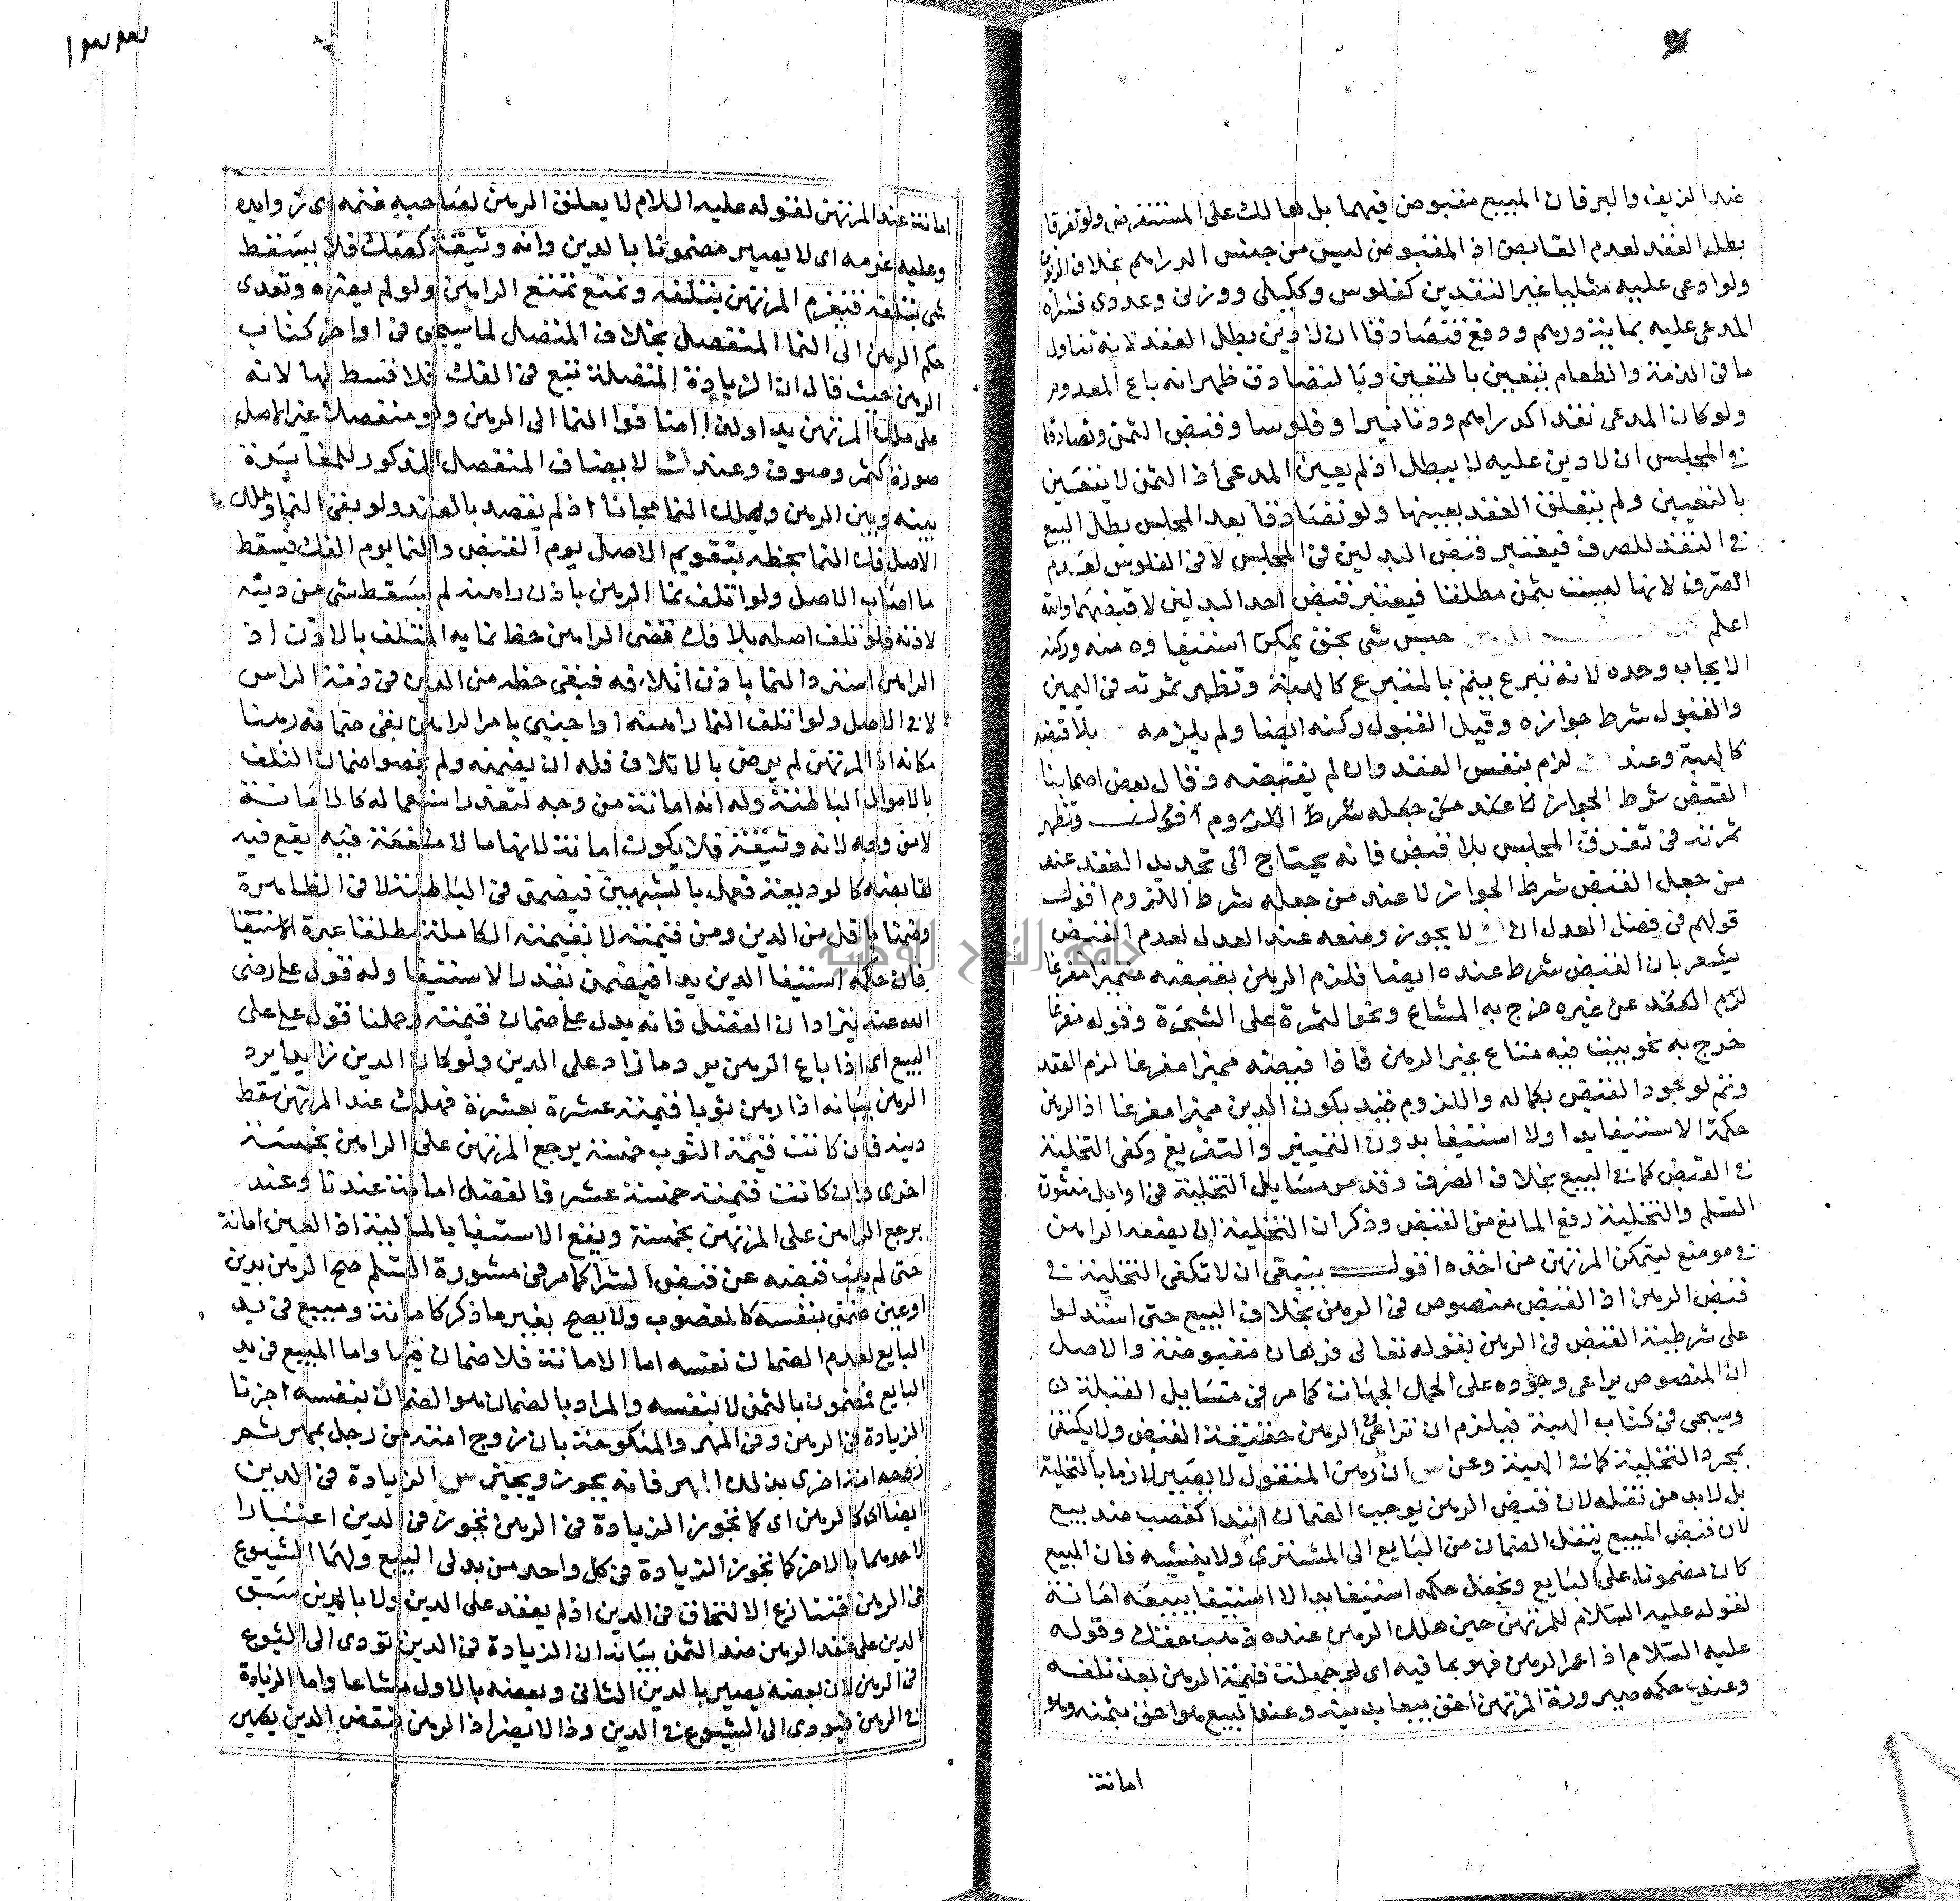 ضد الزيف والبر فان المبيع مقبوض فيهما بل هالك على المستقرض ولو تفرقا
بطل العقد لعدم القابض اذ المقبوض ليس من جنس الدراهم بخلاف الزيوف
ولو ادعى عليه مثليا غير النقدين كفلوس وككيلى ووزنى وعددى فشراه
المدعى عليه بماية درهم ودفع فتصادقا ان لا دين بطل العقد لانه تناول
ما فى الذمة والطعام يتعين بالتعيين وبالتصادق ظهر انه باع المعدوم
ولو كان المدعى نقدا كدراهم ودنانير او فلوسا وقبض الثمن وتصادقا
فى المجلس ان لا دين عليه لا يبطل اذ لم يعين المدعى اذ الثمن لا يتعين
بالتعيين ولم يتعلق العقد بعينها ولو تصادقا بعد المجلس بطل البيع
فى النقد للصرف فيعتبر قبض البدلين فى المجلس لا فى الفلوس لعدم
الصرف لانها ليست بثمن مطلقا فيعتبر قبض احد البدلين لا قبضهما والله
اعلم حبس شى بحق يمكن استيفاوه منه وركنه
الايجاب وحده لانه تبرع يتم بالمتبرع كالهبة وتظهر ثمرته فى اليمين
والقبول شرط جوازه وقيل القبول ركنه ايضا ولم يلزمه بلا قبضه
كالهبة وعند لزم بنفس العقد وان لم يقبضه وقال بعض اصحابنا
القبض شرط الجواز لا عند من جعله شرط اللزوم اقول وتظهر
ثمرته فى تفرق المجلس بلا قبض فانه يحتاج الى تجديد العقد عند
من جعل القبض شرط الجواز لا عند من جعله شرط اللزوم اقول
قولهم فى فصل العدل ان لا يجوز وضعه عند العدل لعدم القبض
يشعر بان القبض شرط عنده ايضا فلزم الرهن بقبضه متميزا مفرغا
لزم العقد عن غيره خرج به المشاع ونحو الثمرة على الشجرة وقوله مفرغا
خرج به نحو بيت فيه متاع غير الرهن فاذا قبضه مميزا مفرغا لزم العقد
وتم لوجود القبض بكماله واللزوم فيه بكون الدين مميزا مفرغا اذ الرهن
حكمه الاستيفا يدا ولا استيفا بدون التمييز والتفريغ وكفى التخلية
فى القبض كما فى البيع بخلاف الصرف وقد مر مسايل التخلية فى اوايل مشورة
المسلم والتخلية رفع المانع من القبض وذكر ان التخلية ان يضعه الراهن
فى موضع ليتمكن المرتهن من اخذه اقول ينبغى ان لا تكفى التخلية فى
قبض الرهن اذ القبض منصوص فى الرهن بخلاف البيع حتى استدلوا
على شرطية القبض فى الرهن بقوله تعالى فرهان مقبوضة والاصل
ان المنصوص يراعى وجوده على اكمل الجهات كما مر فى مسايل القبلة ن
وسيجى فى كتاب الهبة فيلزم ان تراعى فى الرهن حقيقة القبض ولا يكتفى
بمجرد التخلية كما فى الهبة وعن س ان رهن المنقول لا يصير لازما بالتخلية
بل لابد من نقله لان قبض الرهن يوجب الضمان ابتدا كغصب ضد بيع
لان قبض المبيع ينقل الضمان من البايع الى المشترى ولا ينشيه فان المبيع
كان مضمونا على البايع ونجعل حكمه استيفا يدا لا استيفا ببيعه امانة
لقوله عليه السلام للمرتهن حين هلك الرهن عنده ذهب حقك وقوله
عليه السلام اذا عمى الرهن فهو بما فيه اى لو جهلت قيمة الرهن بعد تلفه
وعند حكمه صيرورة المرتهن احق بيعا بدينه وعند البيع هو احق بثمنه وهو
امانة
امانة عند المرتهن لقوله عليه السلام لا يعلق الرهن لصاحبه غنمه اى زوايده
وعليه غرمه اى لا يصير مضمونا بالدين وانه وثيقة كصك فلا يسقط
شى بتلفه فتغرم المرتهن بتلفه وتمتع تمتع الراهن ولو لم يعتره وتعدى
حكم الرهن الى النما المنفصل بخلاف المتصل لما سيجى فى اواخر كتاب
الرهن حيث قال ان الزيادة المتصلة تتبع فى الفك فلا قسط لها لانه
على ملك المرتهن يدا ولنا اضافوا النما الى الرهن ولو منفصلا غير الاصل
صورة كثمر وصوف وعند لا يضاف المنفصل المذكور للمغايرة
بينه وبين الرهن ويهلك النما مجانا اذ لم يقصد بالعقد ولو بقى النما وهلك
الاصل فك النما بحظه بتقويم الاصل يوم القبض والنما يوم الفك فيسقط
ما اصاب الاصل ولو اتلف نما الرهن باذن راهنه لم يسقط شى من دينه
لاذنه فلو تلف اصله بلا فك قضى الراهن حظ نمايه المتلف بالاذن اذ
الراهن استرد النما باذن اتلافه فبقى حظه من الدين فى ذمة الراس
لا فى الاصل ولو اتلف النما راهنه او اجنبى بامر الراهن بقى ضمانه رهنا
مكانه اذ المرتهن لم يرض بالاتلاف فله ان يضمنه ولم نصوا ضمان التلف
بالاموال الباطنة وله انه امانة من وجه لتعذر استعماله كالامانة
لا من وجه لانه وثيقة فلا يكون امانة لانها ما لا منفعة فيه يقع فيه
لقابضه كالوديعة فعمل بالشبهين فيضمن فى الباطنة لا فى الظاهرة
وضمنا باقل من الدين ومن قيمته لا بقيمته الكاملة مطلقا عبرة الاستيفا
فان حكمه استيفا الدين يدا فيضمن بقدر الاستيفا وله قول على رضى
الله عنه يترادان الفضل فانه يدل على ضمان قيمته وحملنا قول على على
البيع اى اذا باع الرهن يرد ما زاد على الدين ولو كان الدين زايدا يرد
الرهن بيانه اذا رهن ثوبا قيمته عشرة بعشرة فهلك عند المرتهن سقط
دينه فان كانت قيمة الثوب خمسة يرجع المرتهن على الراهن بخمسة
اخرى وان كانت قيمته خمسة عشر فالفضل امانة عندنا وعند
يرجع الراهن على المرتهن بخمسة ويقع الاستيفا بالمالية اذ العين امانة
حتى لم ينب قبضه عن قبض الشرا كما مر فى مشورة السلم صح الرهن بدين
او عين ضمن بنفسه كالمغصوب ولا يصح بغير ما ذكر كامانة ومبيع فى يد
البايع لعدم الضمان نفسه اما الامانة فلا ضمان فيها واما المبيع فى يد
البايع فمضمون بالثمن لا بنفسه والمراد بالضمان هو الضمان بنفسه اجزنا
الزيادة فى الرهن وفى المهر والمنكوحة بان زوج امته من رجل بمهر ثم
زوجه امة اخرى بذلك المهر فانه يجوز ويجيز س الزيادة فى الدين
ايضا اى كالرهن اى كما تجوز الزيادة فى الرهن تجوز فى الدين اعتبارا
لاحدهما بالاخر كما تجوز الزيادة فى كل واحد من بدلى البيع ولهما الشيوع
فى الرهن فتنازع الالتحاق فى الدين اذ لم يعقد على الدين ولا بالدين سبق
الدين على عقد الرهن ضد الثمن بيانه ان الزيادة فى الدين تودى الى الشيوع
فى الرهن لان بعضه يصير بالدين الثانى وبعضه بالاول مشاعا واما الزيادة
فى الرهن فيودى الى الشيوع فى الدين وذا لا يضر اذ الرهن ببعض الدين يصح
جامعة النجاح الوطنية